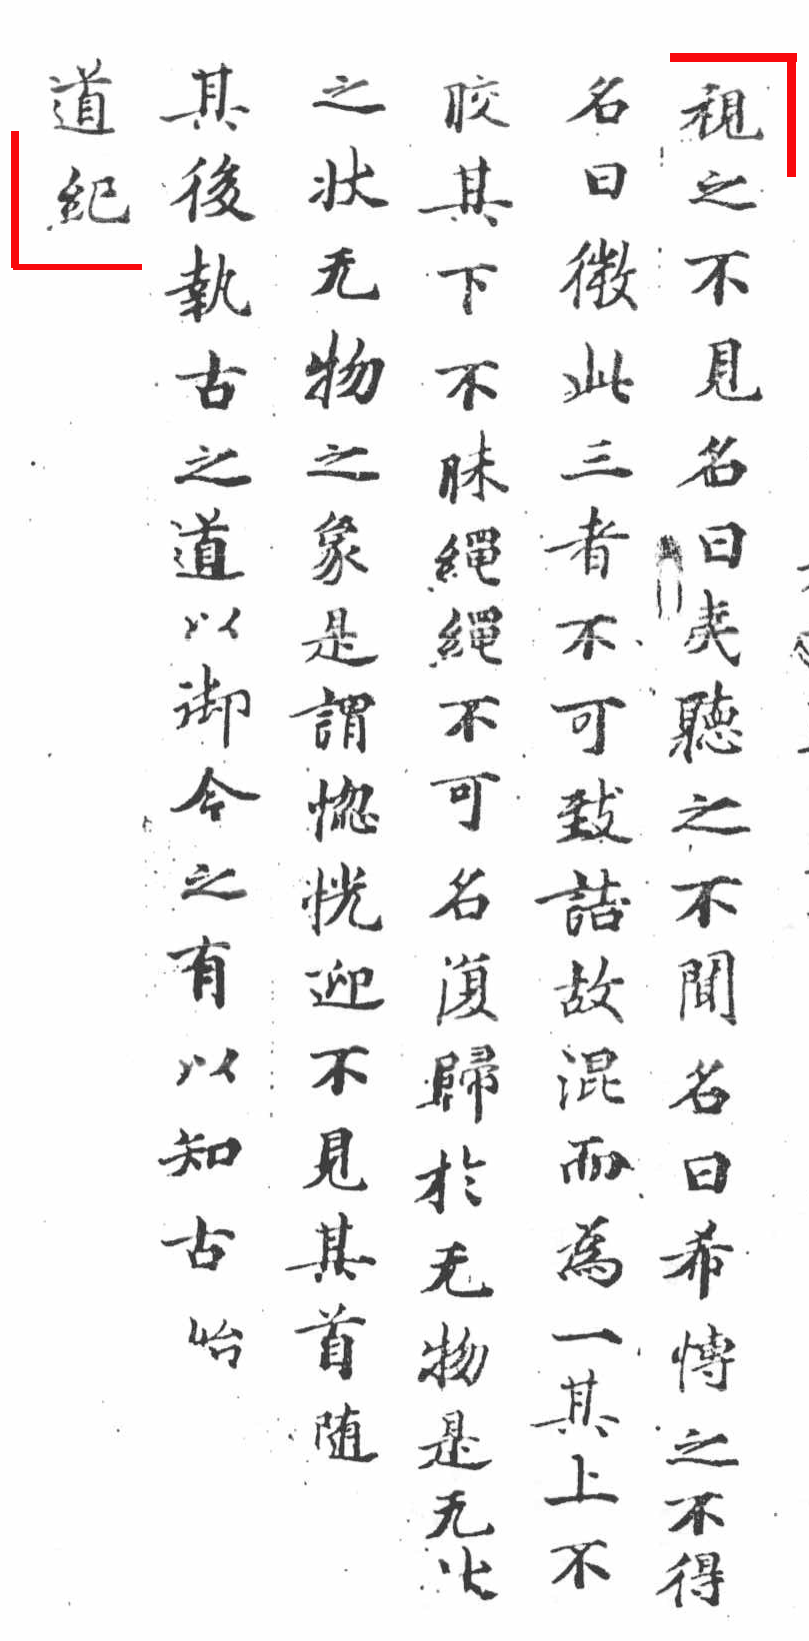 視之不見名曰夷聽之不聞名曰希慱之不得
名曰微此三者不可致詰故混而為一其上不
皎其下不昧繩繩不可名復歸於无物是无
之狀无物之象是謂惚恍迎不見其首随
其後執古之道以御今之有以知古始
道紀